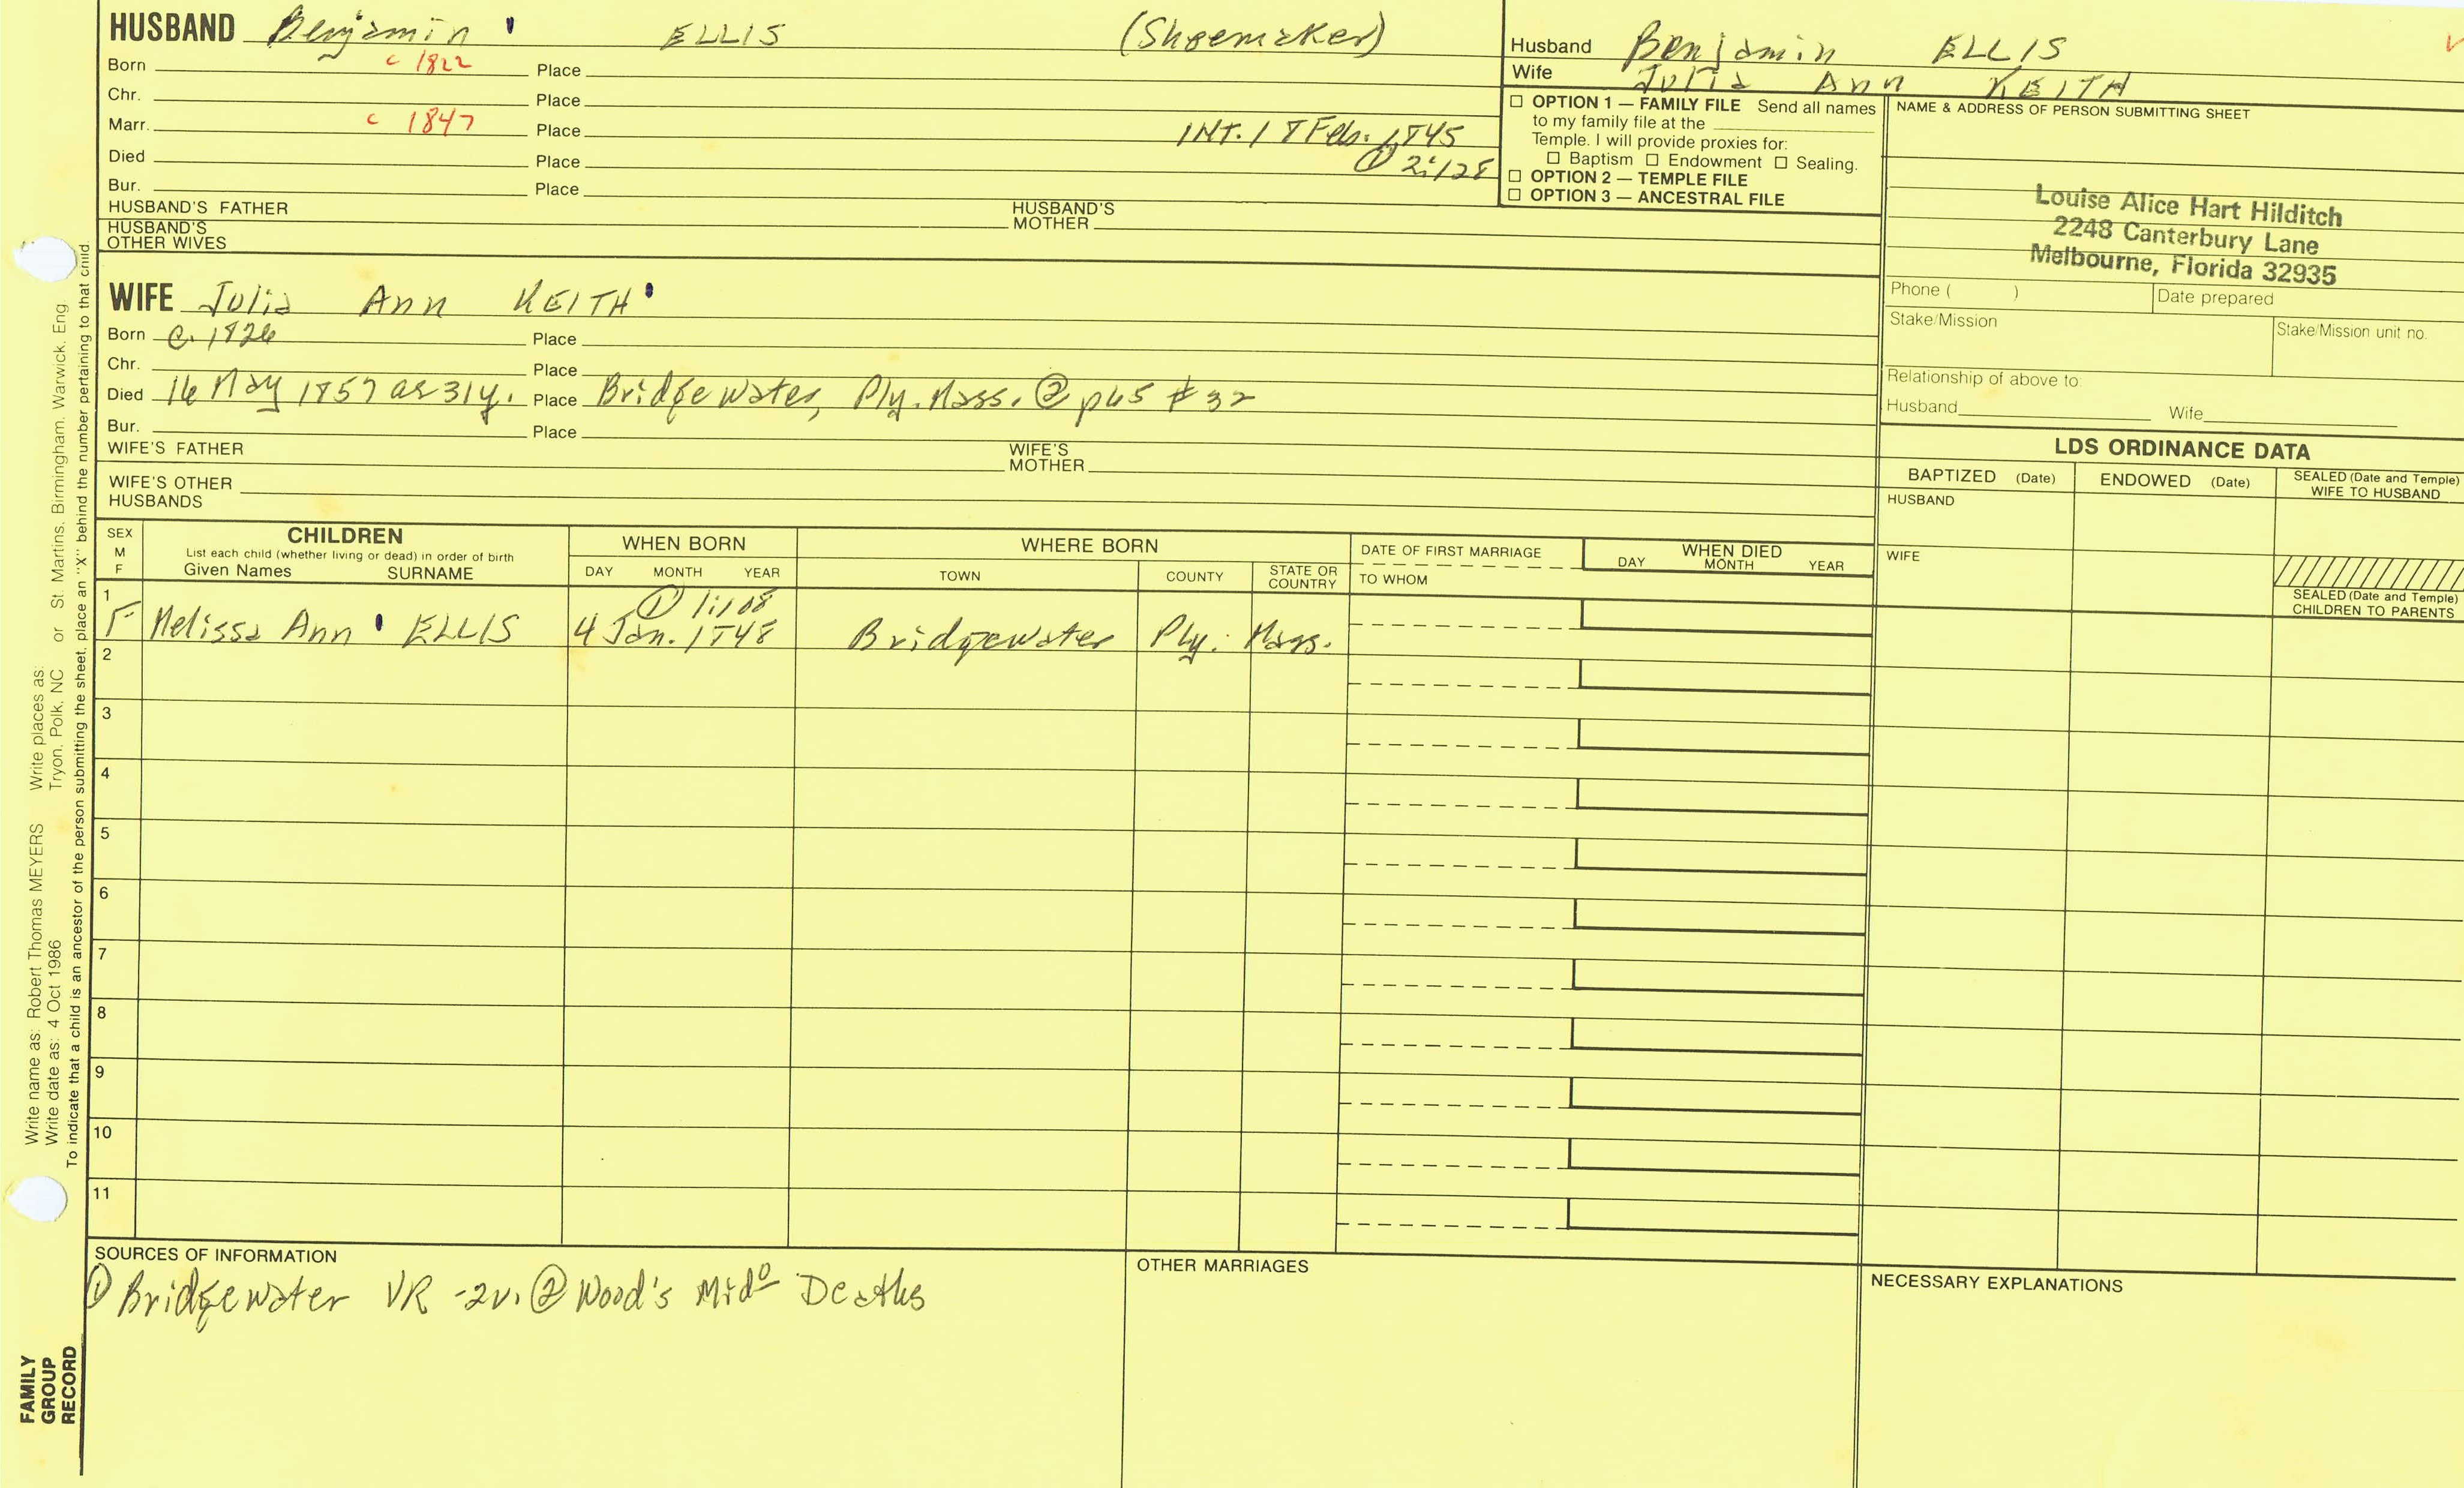 HUSBAND Benjamin ELLIS (Shoemaker)
Born c 1822 Place
Chr. Place
Marr. c 1847 Place INT. 18 Feb. 1845
Died Place ① 2:128
Bur. Place
HUSBAND'S FATHER HUSBAND'S MOTHER
HUSBAND'S OTHER WIVES
Husband Benjamin ELLIS
Wife Julia Ann KEITH
☐ OPTION 1 — FAMILY FILE Send all names
to my family file at the
Temple. I will provide proxies for:
☐ Baptism ☐ Endowment ☐ Sealing.
☐ OPTION 2 — TEMPLE FILE
☐ OPTION 3 — ANCESTRAL FILE
NAME & ADDRESS OF PERSON SUBMITTING SHEET
Louise Alice Hart Hilditch
2248 Canterbury Lane
Melbourne, Florida 32935
Phone ( ) Date prepared
Stake/Mission Stake/Mission unit no.
Relationship of above to:
Husband Wife
WIFE Julia Ann KEITH
Born c. 1826 Place
Chr. Place
Died 16 May 1857 ae 31y. Place Bridgewater, Ply. Mass. ② p45 #32
Bur. Place
WIFE'S FATHER WIFE'S MOTHER
WIFE'S OTHER HUSBANDS
LDS ORDINANCE DATA
BAPTIZED (Date) ENDOWED (Date) SEALED (Date and Temple) WIFE TO HUSBAND
HUSBAND
WIFE
SEALED (Date and Temple)
CHILDREN TO PARENTS
SEX M F
CHILDREN
List each child (whether living or dead) in order of birth
Given Names SURNAME
WHEN BORN
DAY MONTH YEAR
WHERE BORN
TOWN COUNTY STATE OR COUNTRY
DATE OF FIRST MARRIAGE
TO WHOM
WHEN DIED
DAY MONTH YEAR
1 ① 1:108
F Melissa Ann ELLIS 4 Jan. 1848 Bridgewater Ply. Mass.
2
3
4
5
6
7
8
9
10
11
SOURCES OF INFORMATION
① Bridgewater VR -2v. ② Wood's Midº Deaths
OTHER MARRIAGES
NECESSARY EXPLANATIONS
Write name as: Robert Thomas MEYERS Write places as:
Write date as: 4 Oct 1986 Tryon, Polk, NC or St. Martins, Birmingham, Warwick, Eng
To indicate that a child is an ancestor of the person submitting the sheet, place an "X" behind the number pertaining to that child.
FAMILY
GROUP
RECORD